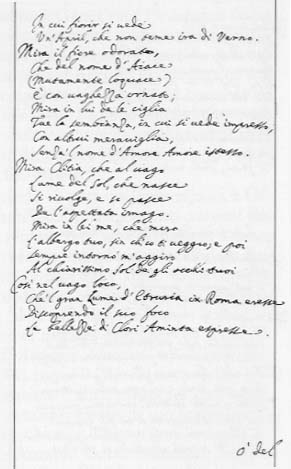 In cui fiorir si vede
Un' April, che non teme ira di Verno.
Mira il fiore odorato,
Che del nome d'Aiace
(Mutamente loquace)
È con vaghezza ornato;
Mira in lui de le ciglia
Tue la sembianza, in cui si vede impresso,
Con altrui meraviglia,
Senza 'l nome d'Amore Amore istesso.
Mira Clitia, che al vago
Lume del Sol, che nasce
Si rivolge, e si pasce
De l'aspettata imago.
Mira in lei me, che miro
L'albergo tuo, sin ch'io ti veggio, e poi
Sempre intorno m'aggiro
Al chiarissimo Sol de gli occhi tuoi
Così nel vago loco,
Che 'l gran Lume d'Etruria in Roma eresse
Discoprendo il suo foco
La bellezza di Clori Aminta espresse.
O' del